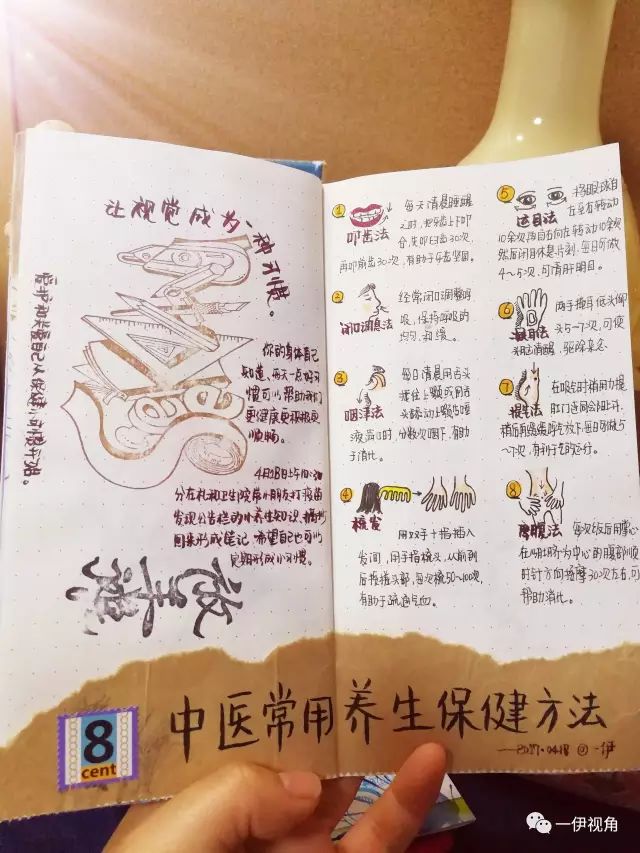 让视觉成为一种习惯。
爱护和关爱自己从保健小习惯开始。
你的身体自己
知道，每天一点好习
惯可以帮助我们
更健康更积极更
顺畅。
分在札和卫生院陪小朋友打疫苗
发现公告栏动小养生知识、摘抄
回来形成笔记、希望自己也可以
定期形成小习惯。
8
cent
① 叩齿法
每天清晨睡醒
之时，把牙齿上下叩
合，先叩臼齿30次，
再叩前齿30次，有助于牙齿坚固。
② 闭口调息法
经常闭口调整呼
吸，保持呼吸的
均匀、和缓。
③ 咽津法
每日清晨用舌头
抵住上颚或用舌
头舔动上颚5
液满口时，
分数次咽下，有助
于消化。
④ 梳发
用双手十指插入
发间，用手指梳头，从前到
后按搓头部，每次梳50~100次，
有助于疏通气血。
⑤ 运目法
将眼球自
左至右转动
10余次，再自右向左转动10余次，
然后闭目休息片刻，每日可做
4~5次，可清肝明目。
⑥ 掩耳法
两手掩耳低头仰
头5~7次，可使
头脑清醒，驱除杂念。
⑦ 提气法
在吸气时稍用力提
肛门连同会阴上升，
稍后再缓缓呼气放下，每日可做5
~7次，有利于气的运行。
⑧ 摩腹法
每次饭后用掌心
在以肚脐为中心的腹部顺
时针方向按摩30次左右，可
帮助消化。
中医常用养生保健方法
一伊视角